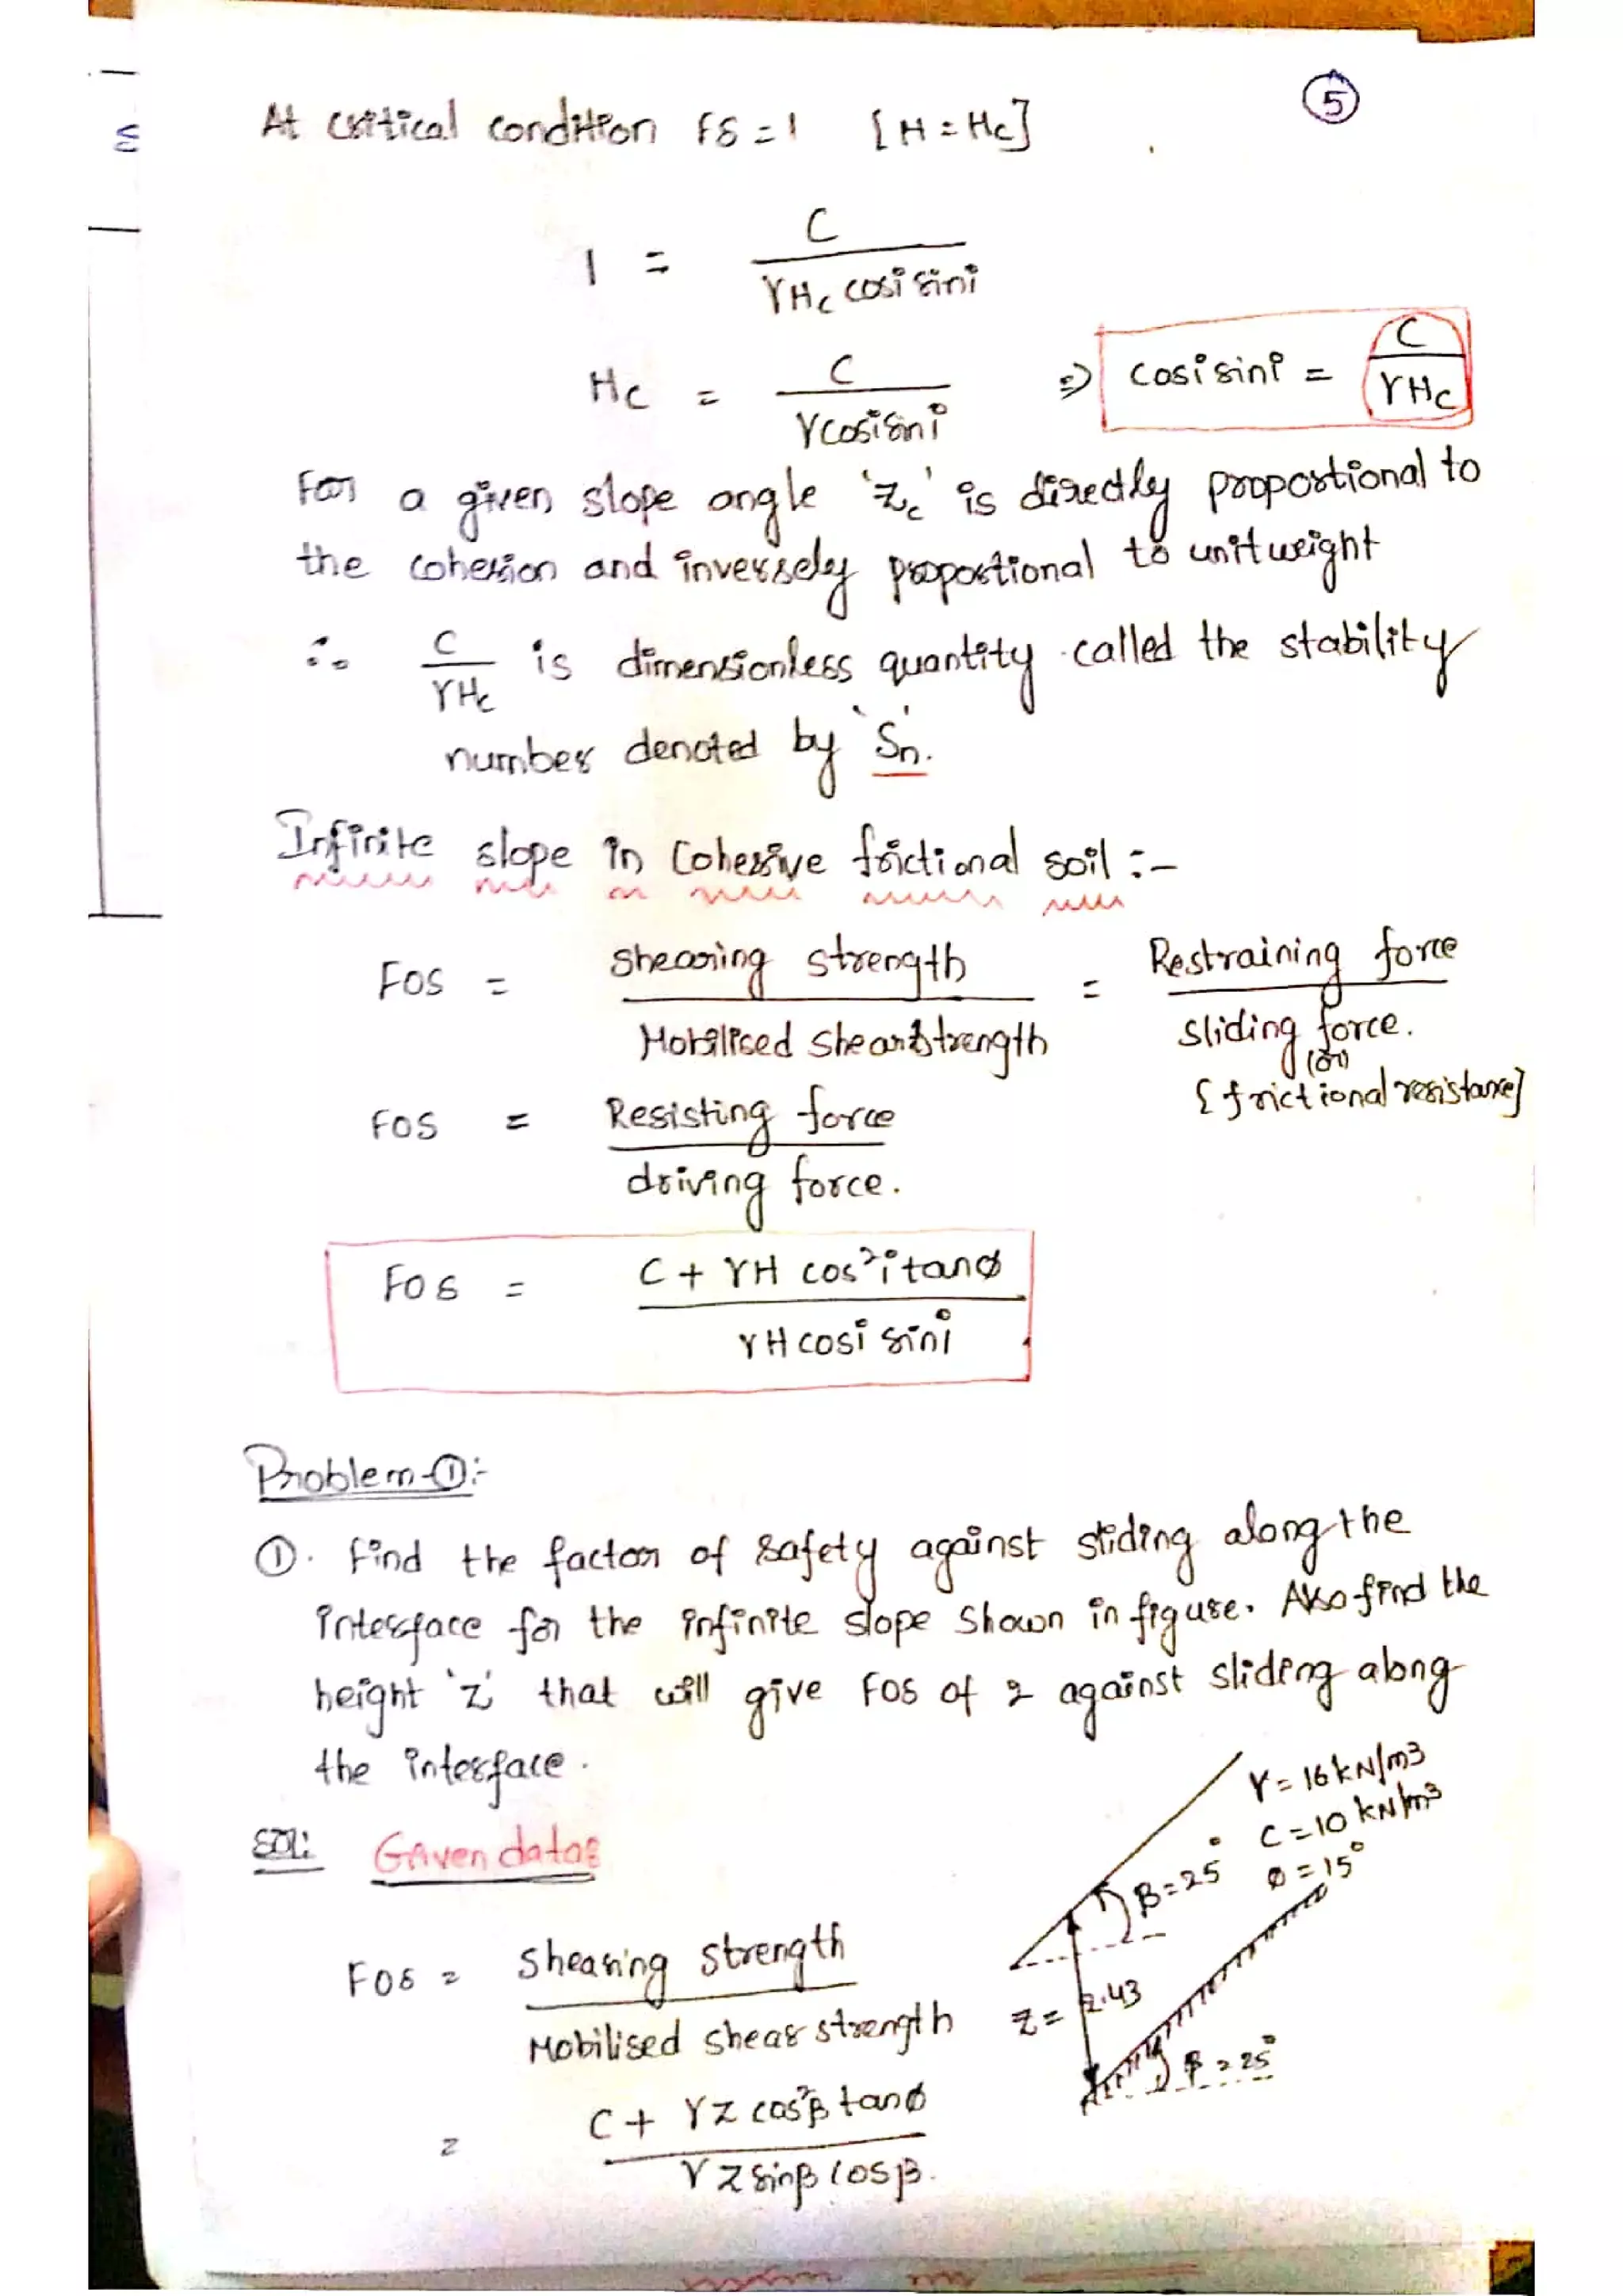 5
At critical condition FS = 1 [H = Hc]
1 = C / γHc cosi sini
Hc = C / γcosi sini ⇒ cosi sini = C / γHc
For a given slope angle 'Zc' is directly proportional to
the cohesion and inversely proportional to unit weight
∴ C / γHc is dimensionless quantity called the stability
number denoted by 'Sn'.
Infinite slope in Cohesive frictional soil :-
FOS = Shearing strength / Mobilised shear strength = Restraining force / sliding force.
(or)
{frictional resistance}
FOS = Resisting force / driving force.
FOS = C + γH cos²i tanø / γH cosi sini
Problem-①:-
①. Find the factor of safety against sliding along the
interface for the infinite slope shown in figure. Also find the
height 'Z' that will give FOS of 2 against sliding along
the interface.
γ = 16 kN/m3
C = 10 kN/m3
ø = 15°
β = 25°
Z = 2.43
β = 25°
Sol: Given data:
FOS = Shearing strength / Mobilised shear strength
= C + γZ cos²β tanø / γZ sinβ cosβ.